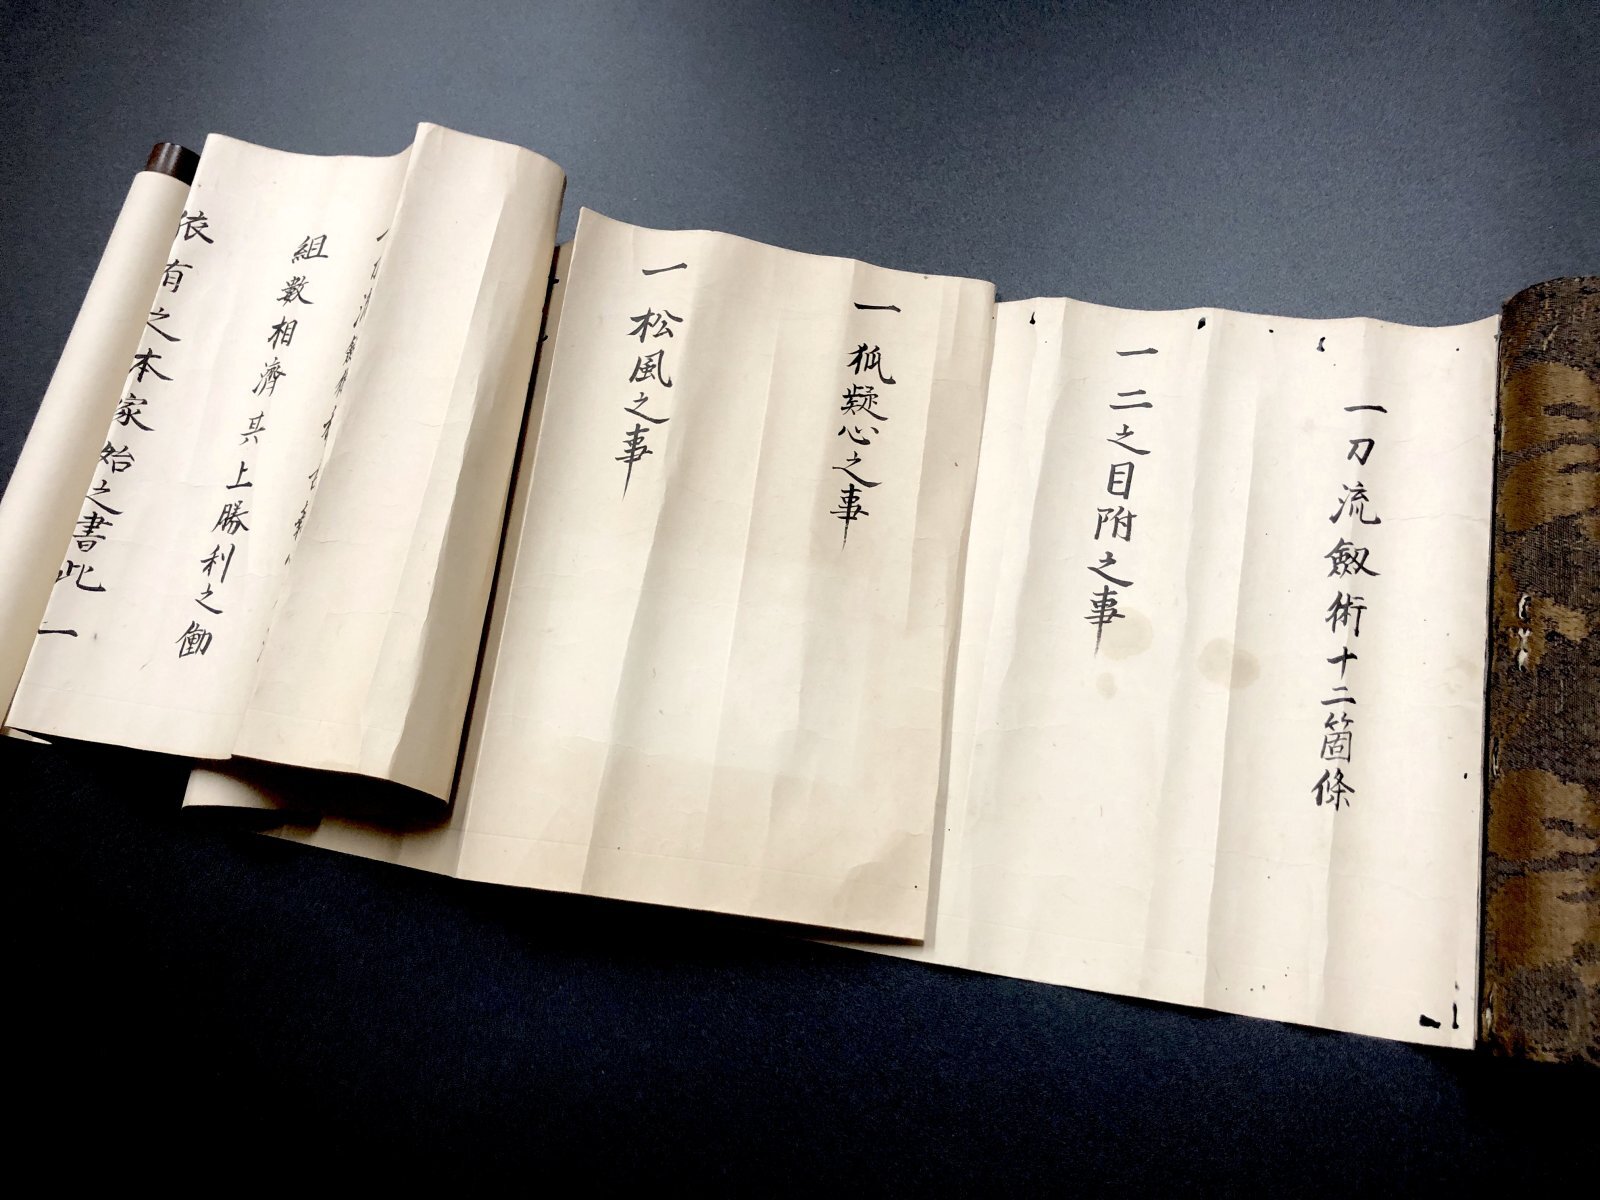 一刀流劔術十二箇條
一二之目附之事
一狐疑心之事
一松風之事
組數相濟其上勝利之働
依有之本家始之書此一